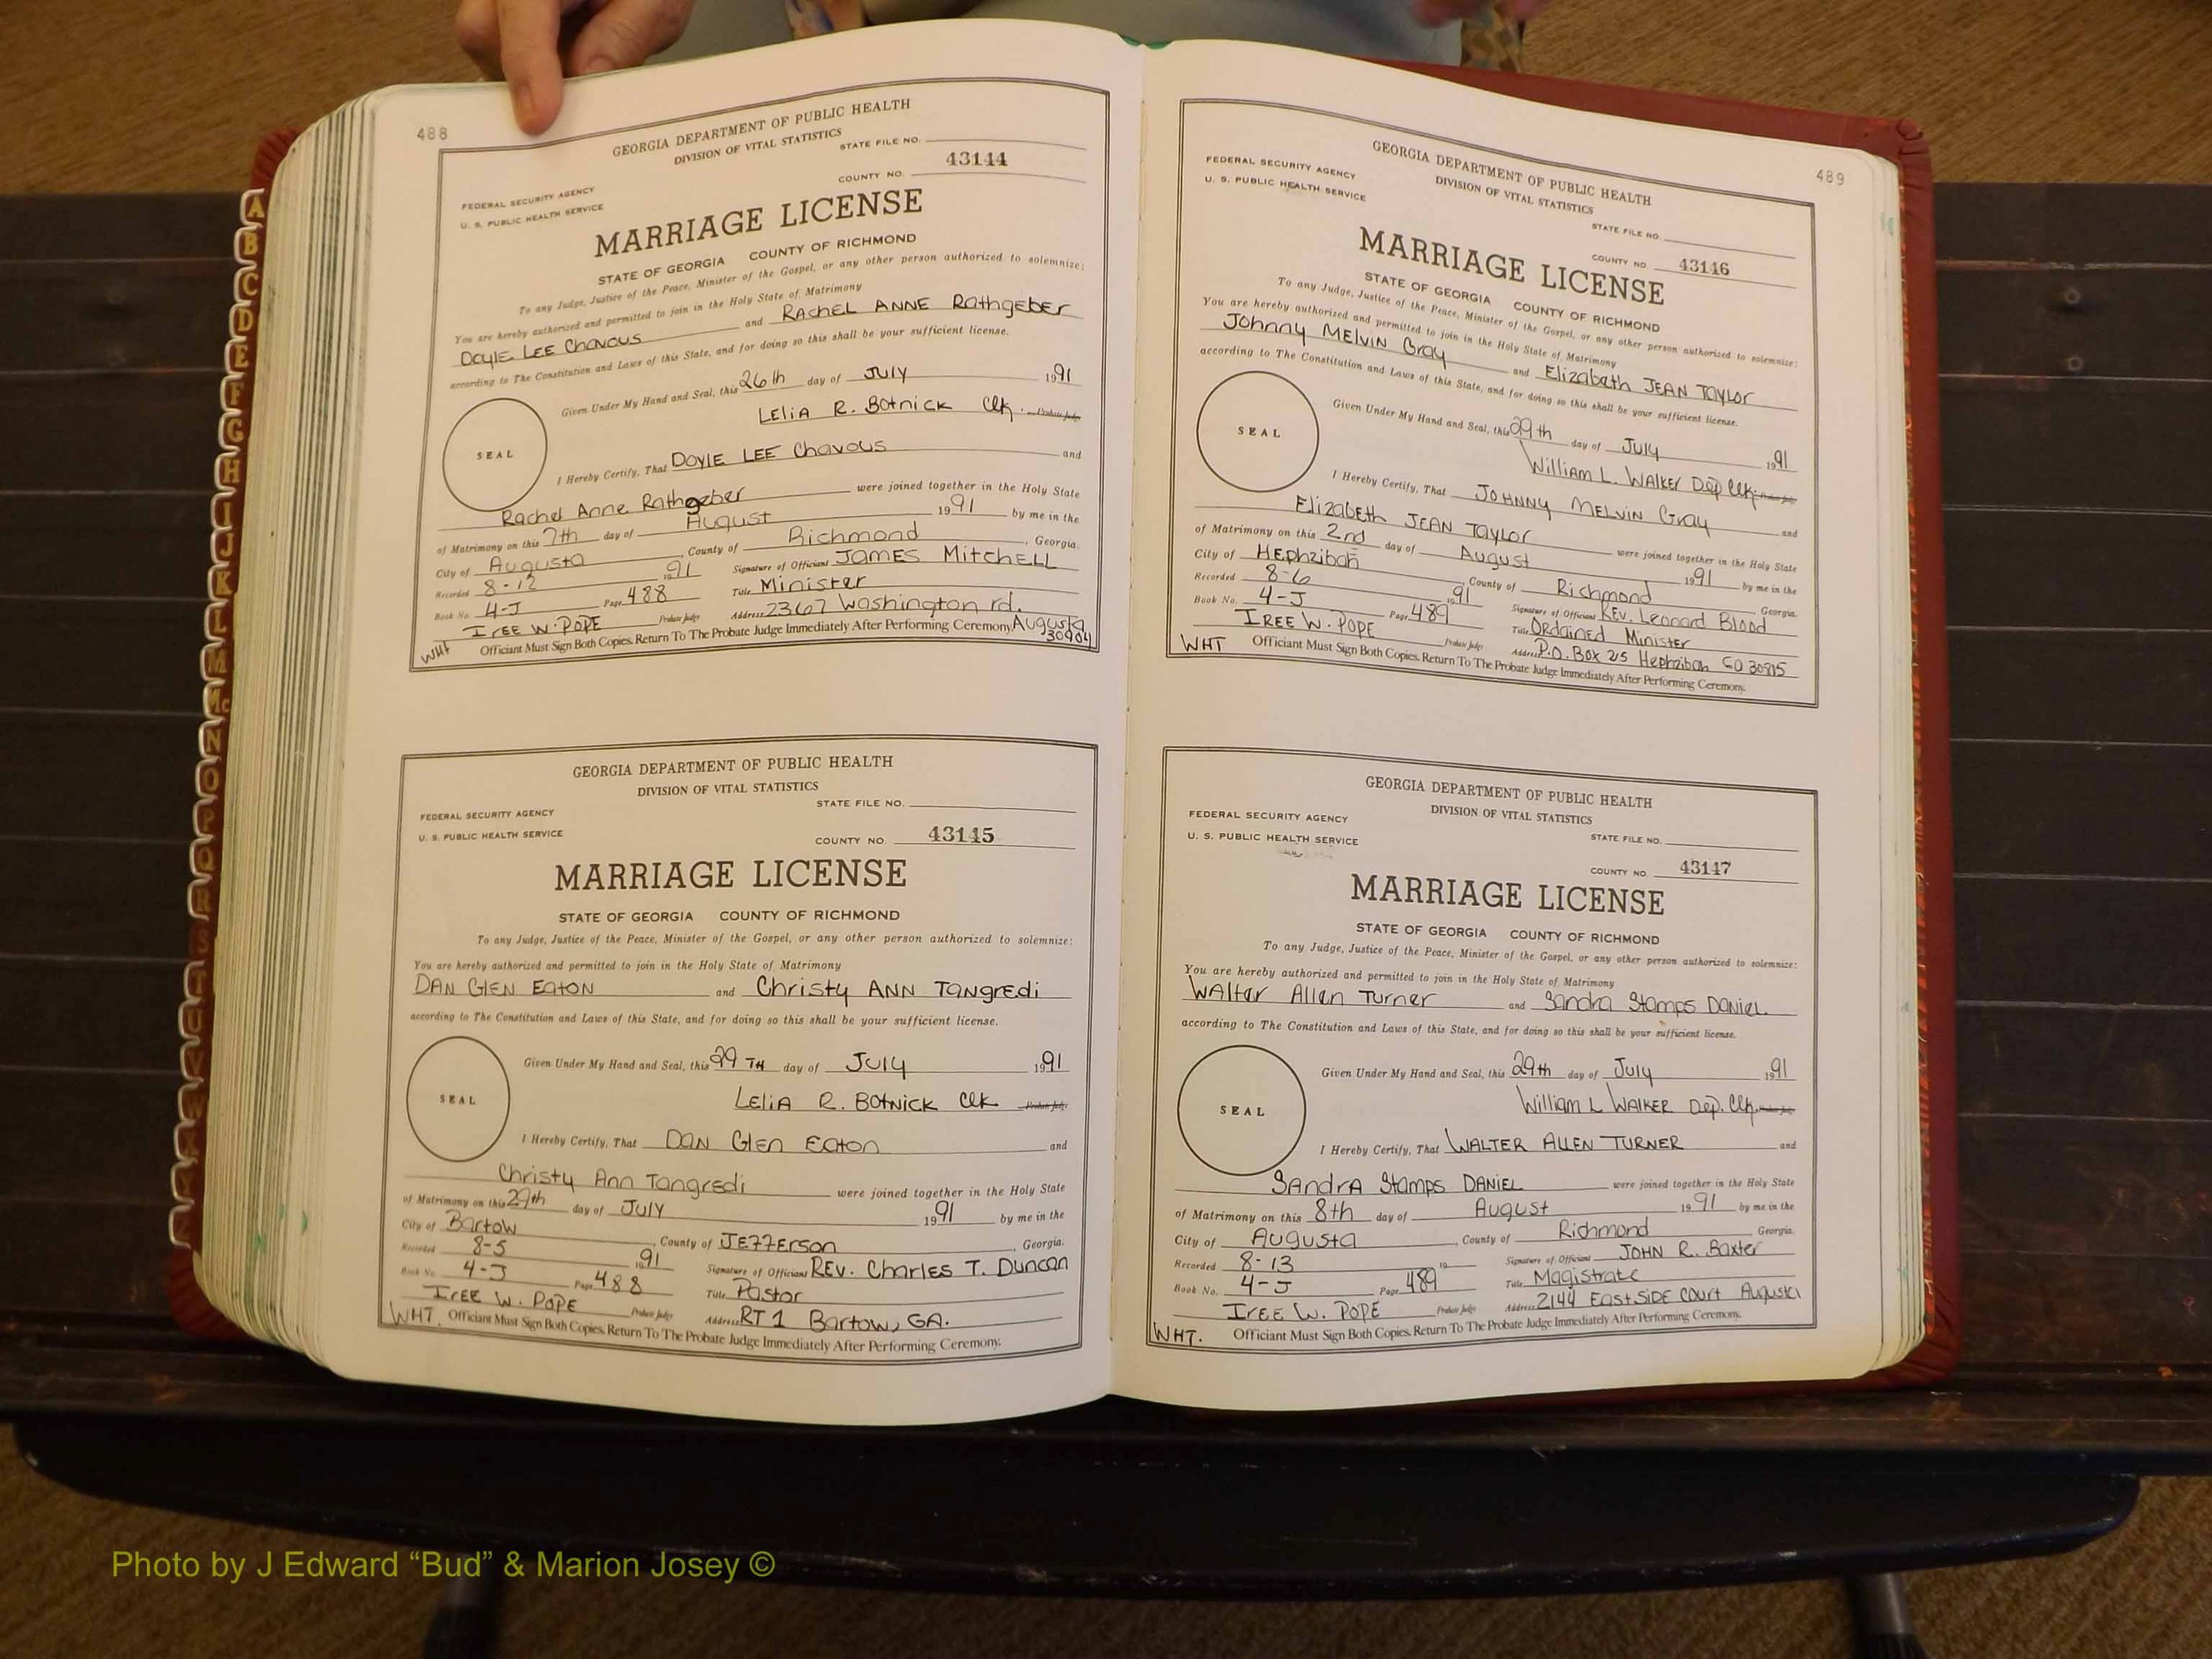 488
GEORGIA DEPARTMENT OF PUBLIC HEALTH
DIVISION OF VITAL STATISTICS
STATE FILE NO.
FEDERAL SECURITY AGENCY
U. S. PUBLIC HEALTH SERVICE
COUNTY NO. 43144
MARRIAGE LICENSE
STATE OF GEORGIA COUNTY OF RICHMOND
To any Judge, Justice of the Peace, Minister of the Gospel, or any other person authorized to solemnize:
You are hereby authorized and permitted to join in the Holy State of Matrimony
Doyle LEE Chavous and RACHEL ANNE Rathgeber
according to The Constitution and Laws of this State, and for doing so this shall be your sufficient license.
Given Under My Hand and Seal, this 26th day of July 1991
LELIA R. BOTNICK Clk. Probate Judge
SEAL
I Hereby Certify, That DOYLE LEE Chavous and
Rachel Anne Rathgeber were joined together in the Holy State
of Matrimony on this 7th day of August 1991 by me in the
City of Augusta, County of Richmond, Georgia.
Recorded 8-12 1991 Signature of Officiant JAMES MITCHELL
Book No. 4-J Page 488 Title Minister
IREE W. POPE Probate Judge Address 2367 Washington rd. Augusta 30904
WHT Officiant Must Sign Both Copies. Return To The Probate Judge Immediately After Performing Ceremony.
GEORGIA DEPARTMENT OF PUBLIC HEALTH
DIVISION OF VITAL STATISTICS
STATE FILE NO.
FEDERAL SECURITY AGENCY
U. S. PUBLIC HEALTH SERVICE
COUNTY NO. 43145
MARRIAGE LICENSE
STATE OF GEORGIA COUNTY OF RICHMOND
To any Judge, Justice of the Peace, Minister of the Gospel, or any other person authorized to solemnize:
You are hereby authorized and permitted to join in the Holy State of Matrimony
DAN GLEN EATON and Christy ANN TANGREDI
according to The Constitution and Laws of this State, and for doing so this shall be your sufficient license.
Given Under My Hand and Seal, this 29 TH day of July 1991
LELIA R. BOTNICK Clk Probate Judge
SEAL
I Hereby Certify, That DAN Glen EATON and
Christy Ann Tangredi were joined together in the Holy State
of Matrimony on this 29th day of JULY 1991 by me in the
City of Bartow, County of JEFFERSON, Georgia.
Recorded 8-5 1991 Signature of Officiant REV. Charles T. Duncan
Book No. 4-J Page 488 Title Pastor
IREE W. POPE Probate Judge Address RT 1 Bartow, GA.
WHT. Officiant Must Sign Both Copies. Return To The Probate Judge Immediately After Performing Ceremony.
489
GEORGIA DEPARTMENT OF PUBLIC HEALTH
DIVISION OF VITAL STATISTICS
FEDERAL SECURITY AGENCY
U. S. PUBLIC HEALTH SERVICE
STATE FILE NO.
COUNTY NO. 43146
MARRIAGE LICENSE
STATE OF GEORGIA COUNTY OF RICHMOND
To any Judge, Justice of the Peace, Minister of the Gospel, or any other person authorized to solemnize:
You are hereby authorized and permitted to join in the Holy State of Matrimony
Johnny MELVIN Gray and Elizabeth JEAN TAYLOR
according to The Constitution and Laws of this State, and for doing so this shall be your sufficient license.
Given Under My Hand and Seal, this 29th day of July 1991
William L. WALKER Dep Clk. Probate Judge
SEAL
I Hereby Certify, That JOHNNY MELVIN Gray and
Elizabeth JEAN Taylor were joined together in the Holy State
of Matrimony on this 2nd day of August 1991 by me in the
City of Hephzibah, County of Richmond, Georgia.
Recorded 8-6 1991 Signature of Officiant REV. Leonard Blood
Book No. 4-J Page 489 Title Ordained Minister
IREE W. POPE Probate Judge Address P.O. Box 215 Hephzibah GA 30815
WHT Officiant Must Sign Both Copies. Return To The Probate Judge Immediately After Performing Ceremony.
GEORGIA DEPARTMENT OF PUBLIC HEALTH
DIVISION OF VITAL STATISTICS
FEDERAL SECURITY AGENCY
U. S. PUBLIC HEALTH SERVICE
STATE FILE NO.
COUNTY NO. 43147
MARRIAGE LICENSE
STATE OF GEORGIA COUNTY OF RICHMOND
To any Judge, Justice of the Peace, Minister of the Gospel, or any other person authorized to solemnize:
You are hereby authorized and permitted to join in the Holy State of Matrimony
Walter Allen Turner and Sandra Stamps DANIEL
according to The Constitution and Laws of this State, and for doing so this shall be your sufficient license.
Given Under My Hand and Seal, this 29th day of July 1991
William L WALKER Dep. Clk. Probate Judge
SEAL
I Hereby Certify, That WALTER ALLEN TURNER and
SANDRA Stamps DANIEL were joined together in the Holy State
of Matrimony on this 8th day of August 1991 by me in the
City of Augusta, County of Richmond Georgia.
Recorded 8-13 19 Signature of Officiant JOHN R. Baxter
Book No. 4-J Page 489 Title Magistrate
IREE W. POPE Probate Judge Address 2144 EastSIDE Court Augusta
WHT. Officiant Must Sign Both Copies. Return To The Probate Judge Immediately After Performing Ceremony.
A
B
C
D
E
F
G
H
I
J
K
L
M
Mc
N
O
P
Q
R
S
T
Photo by J Edward “Bud” & Marion Josey ©